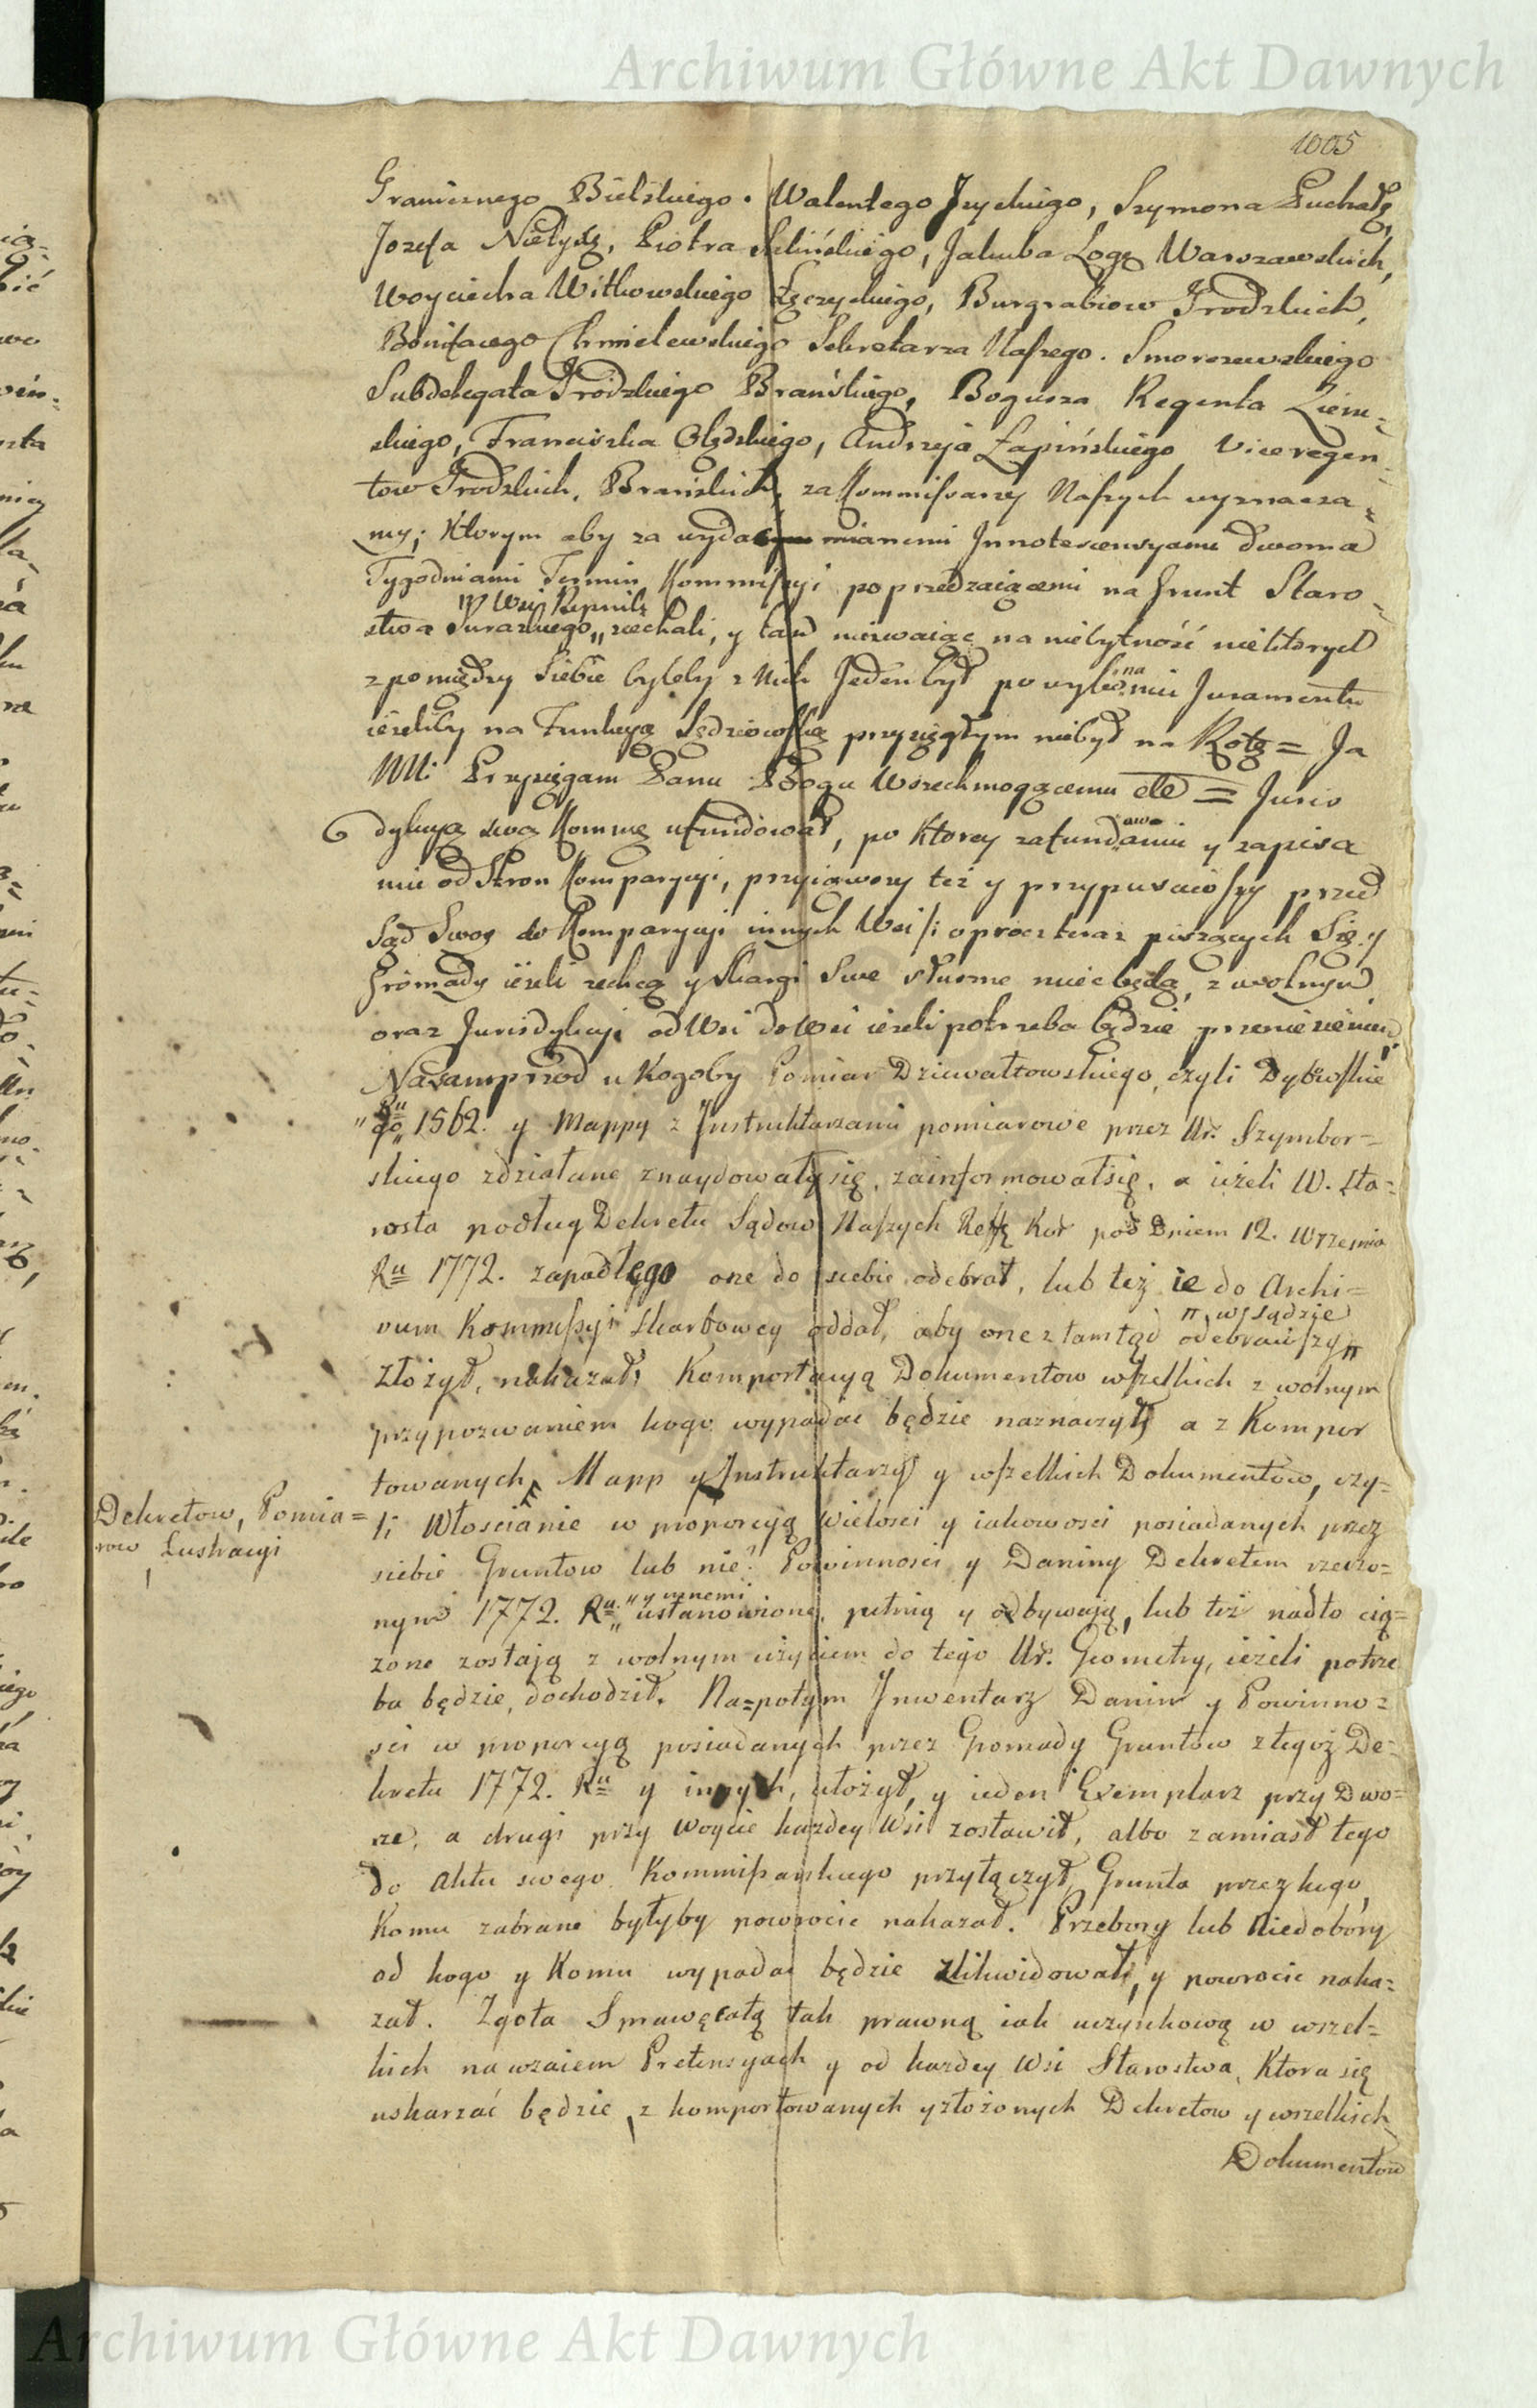 Archiwum Główne Akt Dawnych
1005
Granicznego Bielskiego. Walentego Jzyckiego, Szymona Puchałę,
Jozefa Niełyskę, Piotra Selińskiego, Jakuba Logę Warszawskich,
Woyciecha Witkowskiego Łęczyckiego, Burgrabiow Grodzkich,
Bonifacego Chmielewskiego Sekretarza Naszego. Smorczewskiego
Subdelegata Grodzkiego Brańskiego, Bogusza Regenta Ziem=
skiego, Franciszka Olędzkiego, Andrzeja Łapińskiego Viceregen=
tow Grodzkich, Brańskich, za Kommissarzy Naszych wyznacza=
my; Ktorym aby za wyda mianemi Jnnotescensyami dwoma
Tygodniami Termin Kommissyi poprzedzaiącemi na Grunt Staro=
W Wsi Rypnik
stwa Surazkiego „ ziechali, y tam niewaiąc na niebytność niektorych
z pomiędzy siebie byleby z Nich Jeden był po wyko na niu Juramentu
ieżeliby na Funkcyą Sędziowską przysięgłym niebył na Rotę = Ja
NN: Przysięgam Panu Bogu Wszechmogącemu etc = Juris
dykcyą swą Kommą ufundował, po ktorey zafund awa niu y zapisa
niu od Stron Komparycyi, przyiąwszy też y przypuściwszy przed
Sąd Swoy do Komparycyi innych Wsi/i oprocz teraz piszących Się y
Gromady ieżeli zechcą y skargi swe słuszne mieć będą, z wolnym
oraz Jurisdykcyi od Wsi do Wsi ieżeli potrzeba będzie przeniesieniem.
Nasamprzod u Kogoby Pomiar Dziewałtowskiego, czyli Dybowskie
go „ Ru „ 1562. y Mappy z Jnstruktarzami pomiarowe przez Ur. Szymbor=
skiego zdziałane znaydowały się, zainformował się, a ieżeli W. Sta=
rosta podług Dekretu Sądow Naszych Reffę Kor pod Dniem 12. Wrzesnia
Ru 1772. zapadłego one do siebie odebrał, lub też ie do Archi=
vum Kommissyi Skarbowey oddał, aby one z tamtąd odebrawszy
π w sądzie
złożył, nakazał, Komportacyą Dokumentow wszelkich z wolnym
przypozwaniem kogo wypadać będzie naznaczył, a z Kompor
towanych Mapp y Jnstruktarzy y wszelkich Dokumentow, czy=
Dekretow, Pomia=
row Lustracyi
li Włoscianie w proporcyą wielosci y iakowosci posiadanych przez
siebie Gruntow lub nie? Powinnosci y Daniny Dekretem rzeczo=
nym 1772. Ru „ y innemi „ ustanowione, pełnią y odbywają, lub też nadto cią=
żone zostają z wolnym użyciem do tego Ur. Geometry, ieżeli potrze
ba będzie, dochodził. Na=potym Jnwentarz Danin y Powinno=
sci w proporcyą posiadanych przez Gromady Gruntow z tegoż De=
kretu 1772. Ru y innych, ułożył, y ieden Exemplarz przy Dwo=
rze, a drugi przy Woycie każdey Wsi zostawił, albo zamiast tego
do Aktu swego Kommissarskiego przyłączył, Grunta przez kogo,
Komu zabrane byłyby powrocic nakazał. Przebory lub Niedobory
od kogo y Komu wypadać będzie zlikwidował, y powrocic naka=
zał. Zgoła Sprawę całą tak prawną iak uczynkową w wszel=
kich nawzaiem Pretensyach y od każdey Wsi Starostwa, Ktora się
uskarżać będzie, z komportowanych y złożonych Dekretow y wszelkich
Dokumentow
Archiwum Główne Akt Dawnych